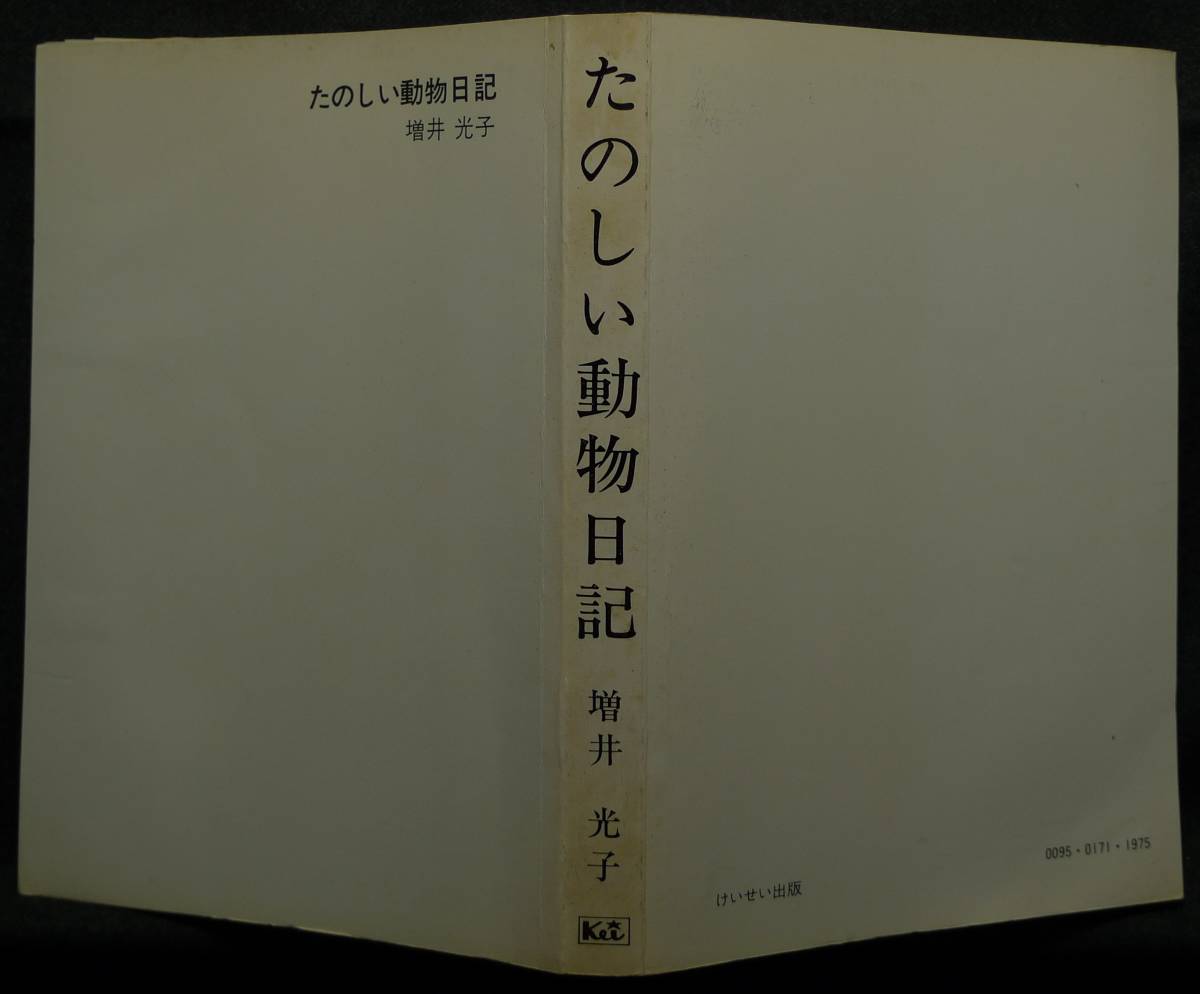 たのしい動物日記
増井 光子
たのしい動物日記
増井 光子
Kei
けいせい出版
0095・0171・1975